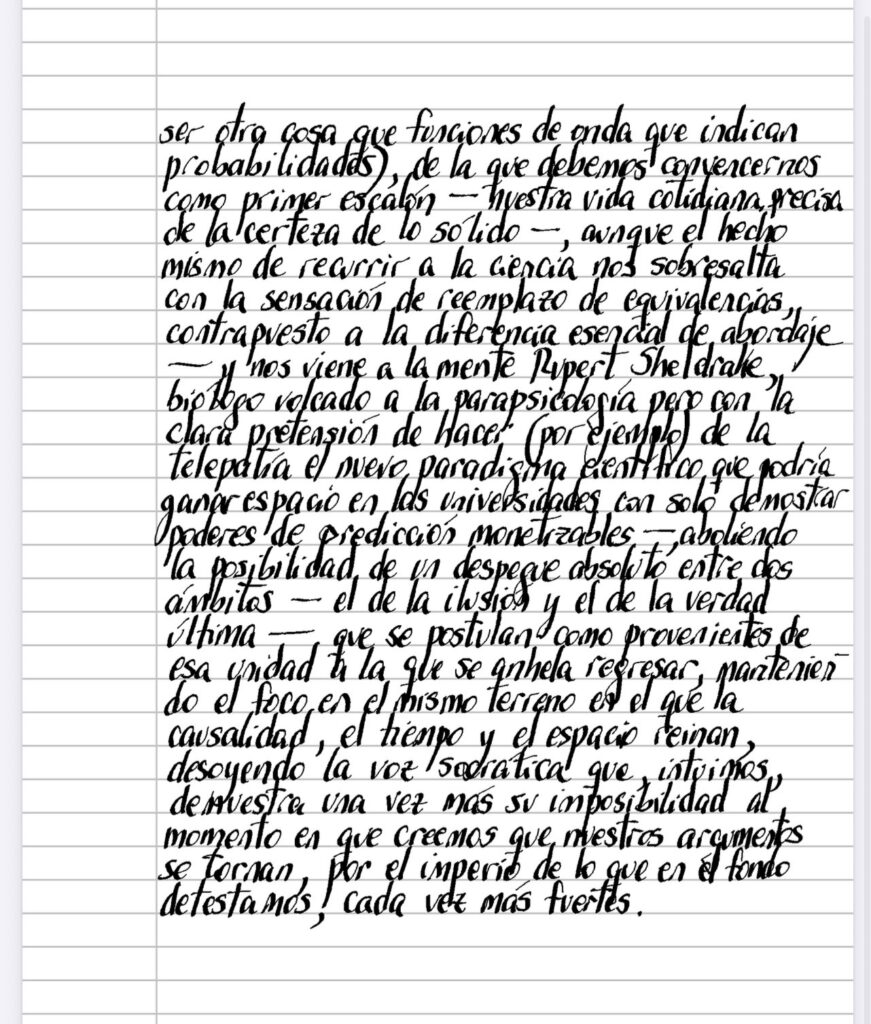 ser otra cosa que funciones de onda que indican
probabilidades), de la que debemos convencernos
como primer escalón — nuestra vida cotidiana precisa
de la certeza de lo sólido —, aunque el hecho
mismo de recurrir a la ciencia nos sobresalta
con la sensación de reemplazo de equivalencias,
contrapuesto a la diferencia esencial de abordaje
— y nos viene a la mente Rupert Sheldrake,
biólogo volcado a la parapsicología pero con la
clara pretensión de hacer (por ejemplo) de la
telepatía el nuevo paradigma científico que podría
ganar espacio en las universidades con solo demostrar
poderes de predicción monetizables —, aboliendo
la posibilidad de un despegue absoluto entre dos
ámbitos — el de la ilusión y el de la verdad
última —, que se postulan como provenientes de
esa unidad a la que se anhela regresar, mantenien
do el foco en el mismo terreno en el que la
causalidad, el tiempo y el espacio reinan,
desoyendo la voz socrática que, intuimos,
demuestra una vez más su imposibilidad al
momento en que creemos que nuestros argumentos
se tornan, por el imperio de lo que en el fondo
detestamos, cada vez más fuertes.